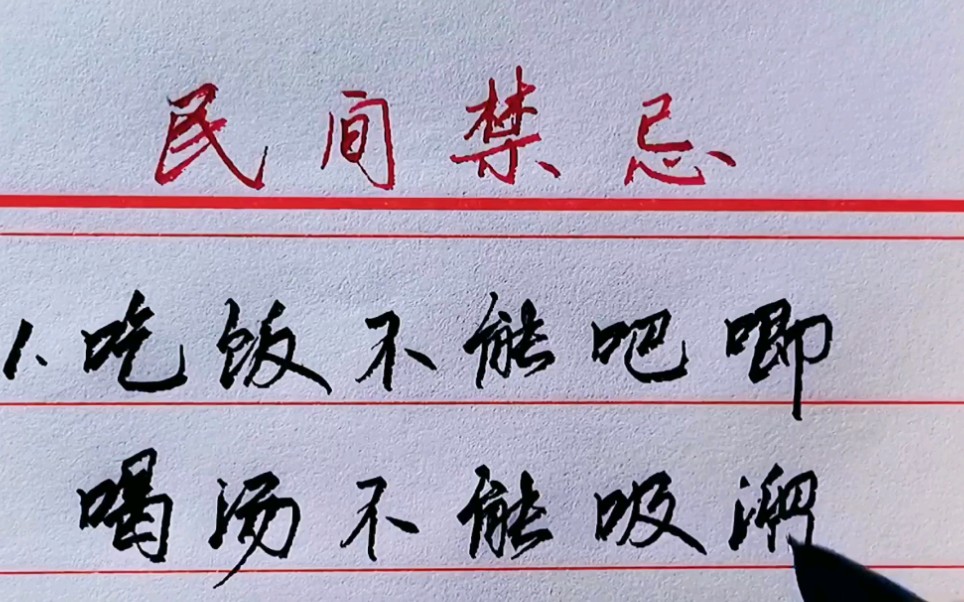 民间禁忌
1、吃饭不能吧唧
喝汤不能吸